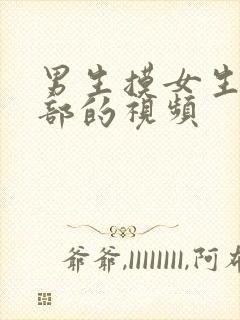 男生摸女生
部的視頻
爷爷,llllllll,阿布